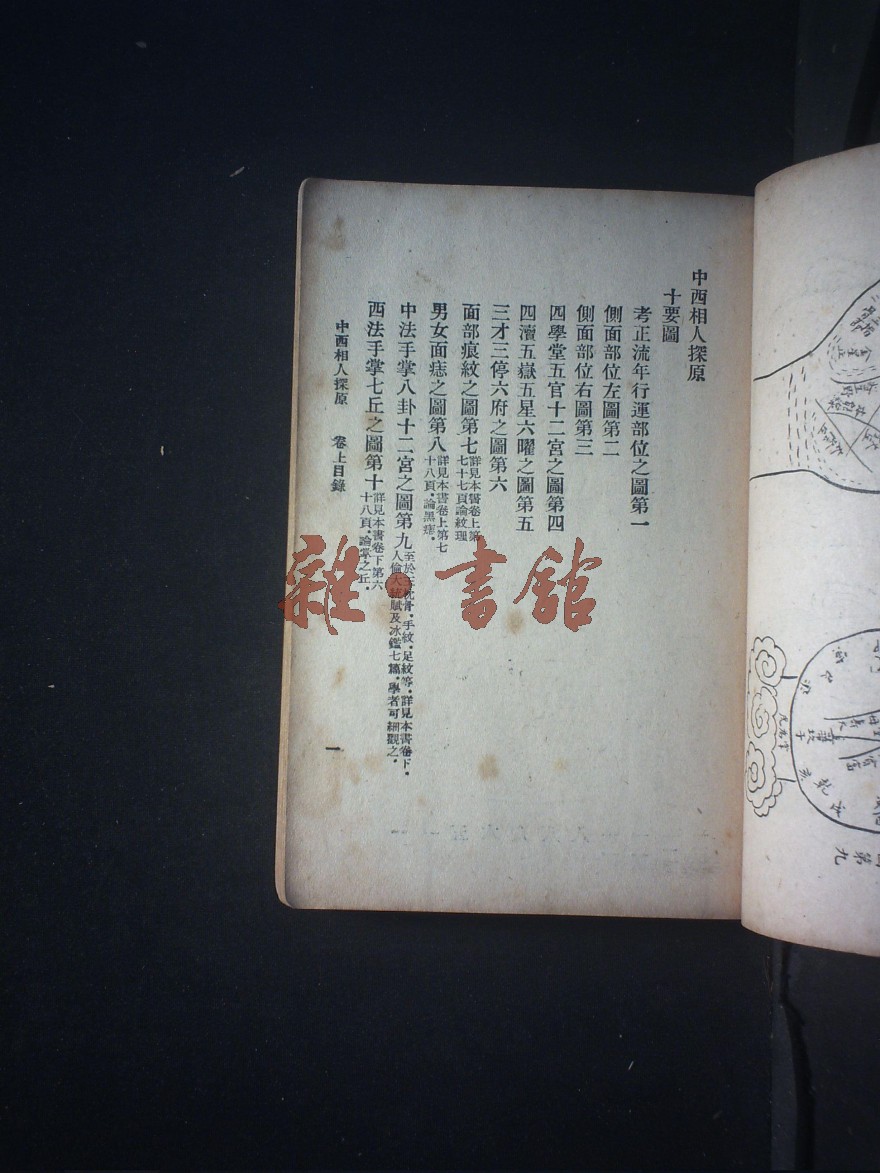 中西相人探原
十要圖
考正流年行運部位之圖第一
側面部位左圖第二
側面部位右圖第三
四學堂五官十二宮之圖第四
四瀆五嶽五星六曜之圖第五
三才三停六府之圖第六
面部痕紋之圖第七詳見本書卷上第七十七頁論紋理
男女面痣之圖第八詳見本書卷上第七十八頁。論黑痣。
中法手掌八卦十二宮之圖第九至於玉枕骨。手紋。足紋等。詳見本書卷下。人倫大統賦及冰鑑七篇。學者可細觀之。
西法手掌七丘之圖第十詳見本書卷下第六十八頁。論掌之丘。
中西相人探原 卷上目錄
一
雜書館
第九